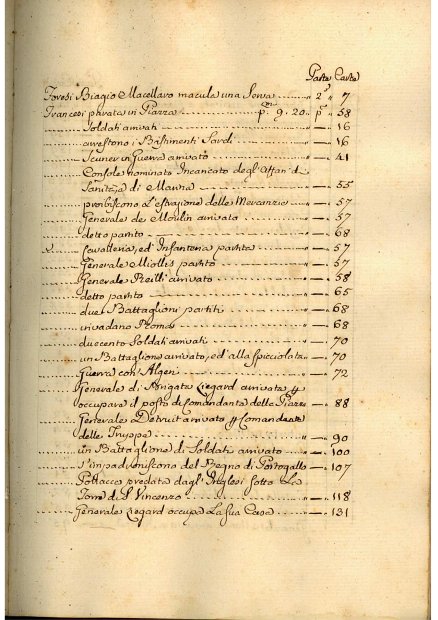 Parte Carte
Foresi Biagio Macellaro macula una Serva ......... " 2ª " 7
Francesi parata in Piazza ......... pma 9. 20.. pª " 58
Soldati arrivati ......... " — " 16
arrestono i Bastimenti Sardi ......... " — " 16
Scuner in Guerra arrivato ......... " — " 41
Console nominato Incaricato degl'Affari d
Sanità di Marina ......... " — 55
proibiscono l'Estrazione delle Mercanzie ......... " — " 57
Generale de Moulin arrivato ......... " — " 57
detto partito ......... " — " 68
Cavalleria, ed Infanteria partita ......... " — " 57
Generale Miollis partito ......... " — " 57
Generale Reilli arrivato ......... " — " 58
detto partito ......... " — " 65
due Battaglioni partiti ......... " — " 68
invadano Roma ......... " — " 68
duecento Soldati arrivati ......... " — " 70
un Battaglione arrivato, ed alla spicciolata .. " — " 70
Guerra con Algeri ......... " — " 72
Generale di Brigata arrivato p
occupare il posto di Comandante della Piazza " — " 88
Generale Detruit arrivato p Comandante
delle Truppe ......... " — 90
un Battaglione di Soldati arrivato ......... " — " 100
s'impadroniscono del Regno di Portogallo " — " 107
Pollacco predata dagl'Inglesi sotto La
Torre di S. Vincenzo ......... " — " 118
Generale occupa La sua Casa ......... " — " 131